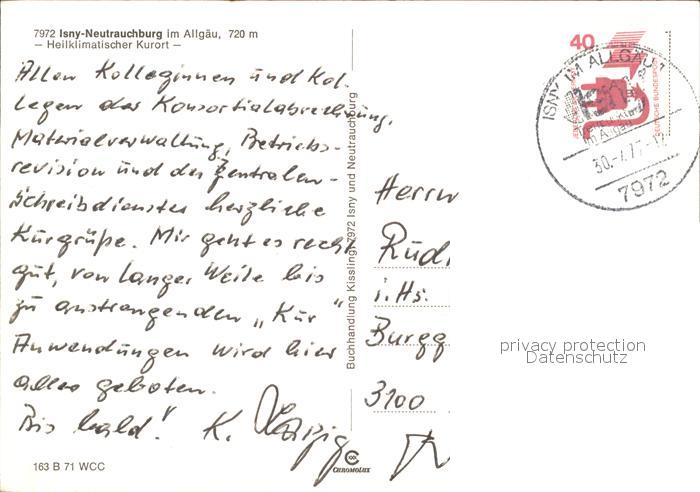 7972 Isny-Neutrauchburg im Allgäu, 720 m
— Heilklimatischer Kurort —
Allen Kolleginnen und Kol-
legen der Konsortialabrechnung,
Materialverwaltung, Betriebs-
revision und des Zentralen-
Schreibdienstes herzliche
Kurgrüße. Mir geht es recht
gut, von langer Weile bis
zu anstrengenden „Kur"
Anwendungen wird hier
alles geboten.
Bis bald! K.
163 B 71 WCC
Buchhandlung Kissling, 7972 Isny und Neutrauchburg
CHROMOLUX
Herrn
Rudi
i. Hs.
Burgg
3100
40
DEUTSCHE BUNDESPOST
ISNY IM ALLGÄU 1
im Allgäu
30.-7.77.-17
7972
privacy protection
Datenschutz